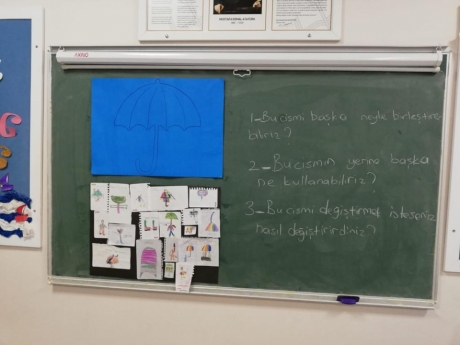 1-Bu cismi başka neyle birleştire
biliriz?
2-Bu cismin yerine başka
ne kullanabiliriz?
3-Bu cismi değiştirmek isteseniz
nasıl değiştirirdiniz?